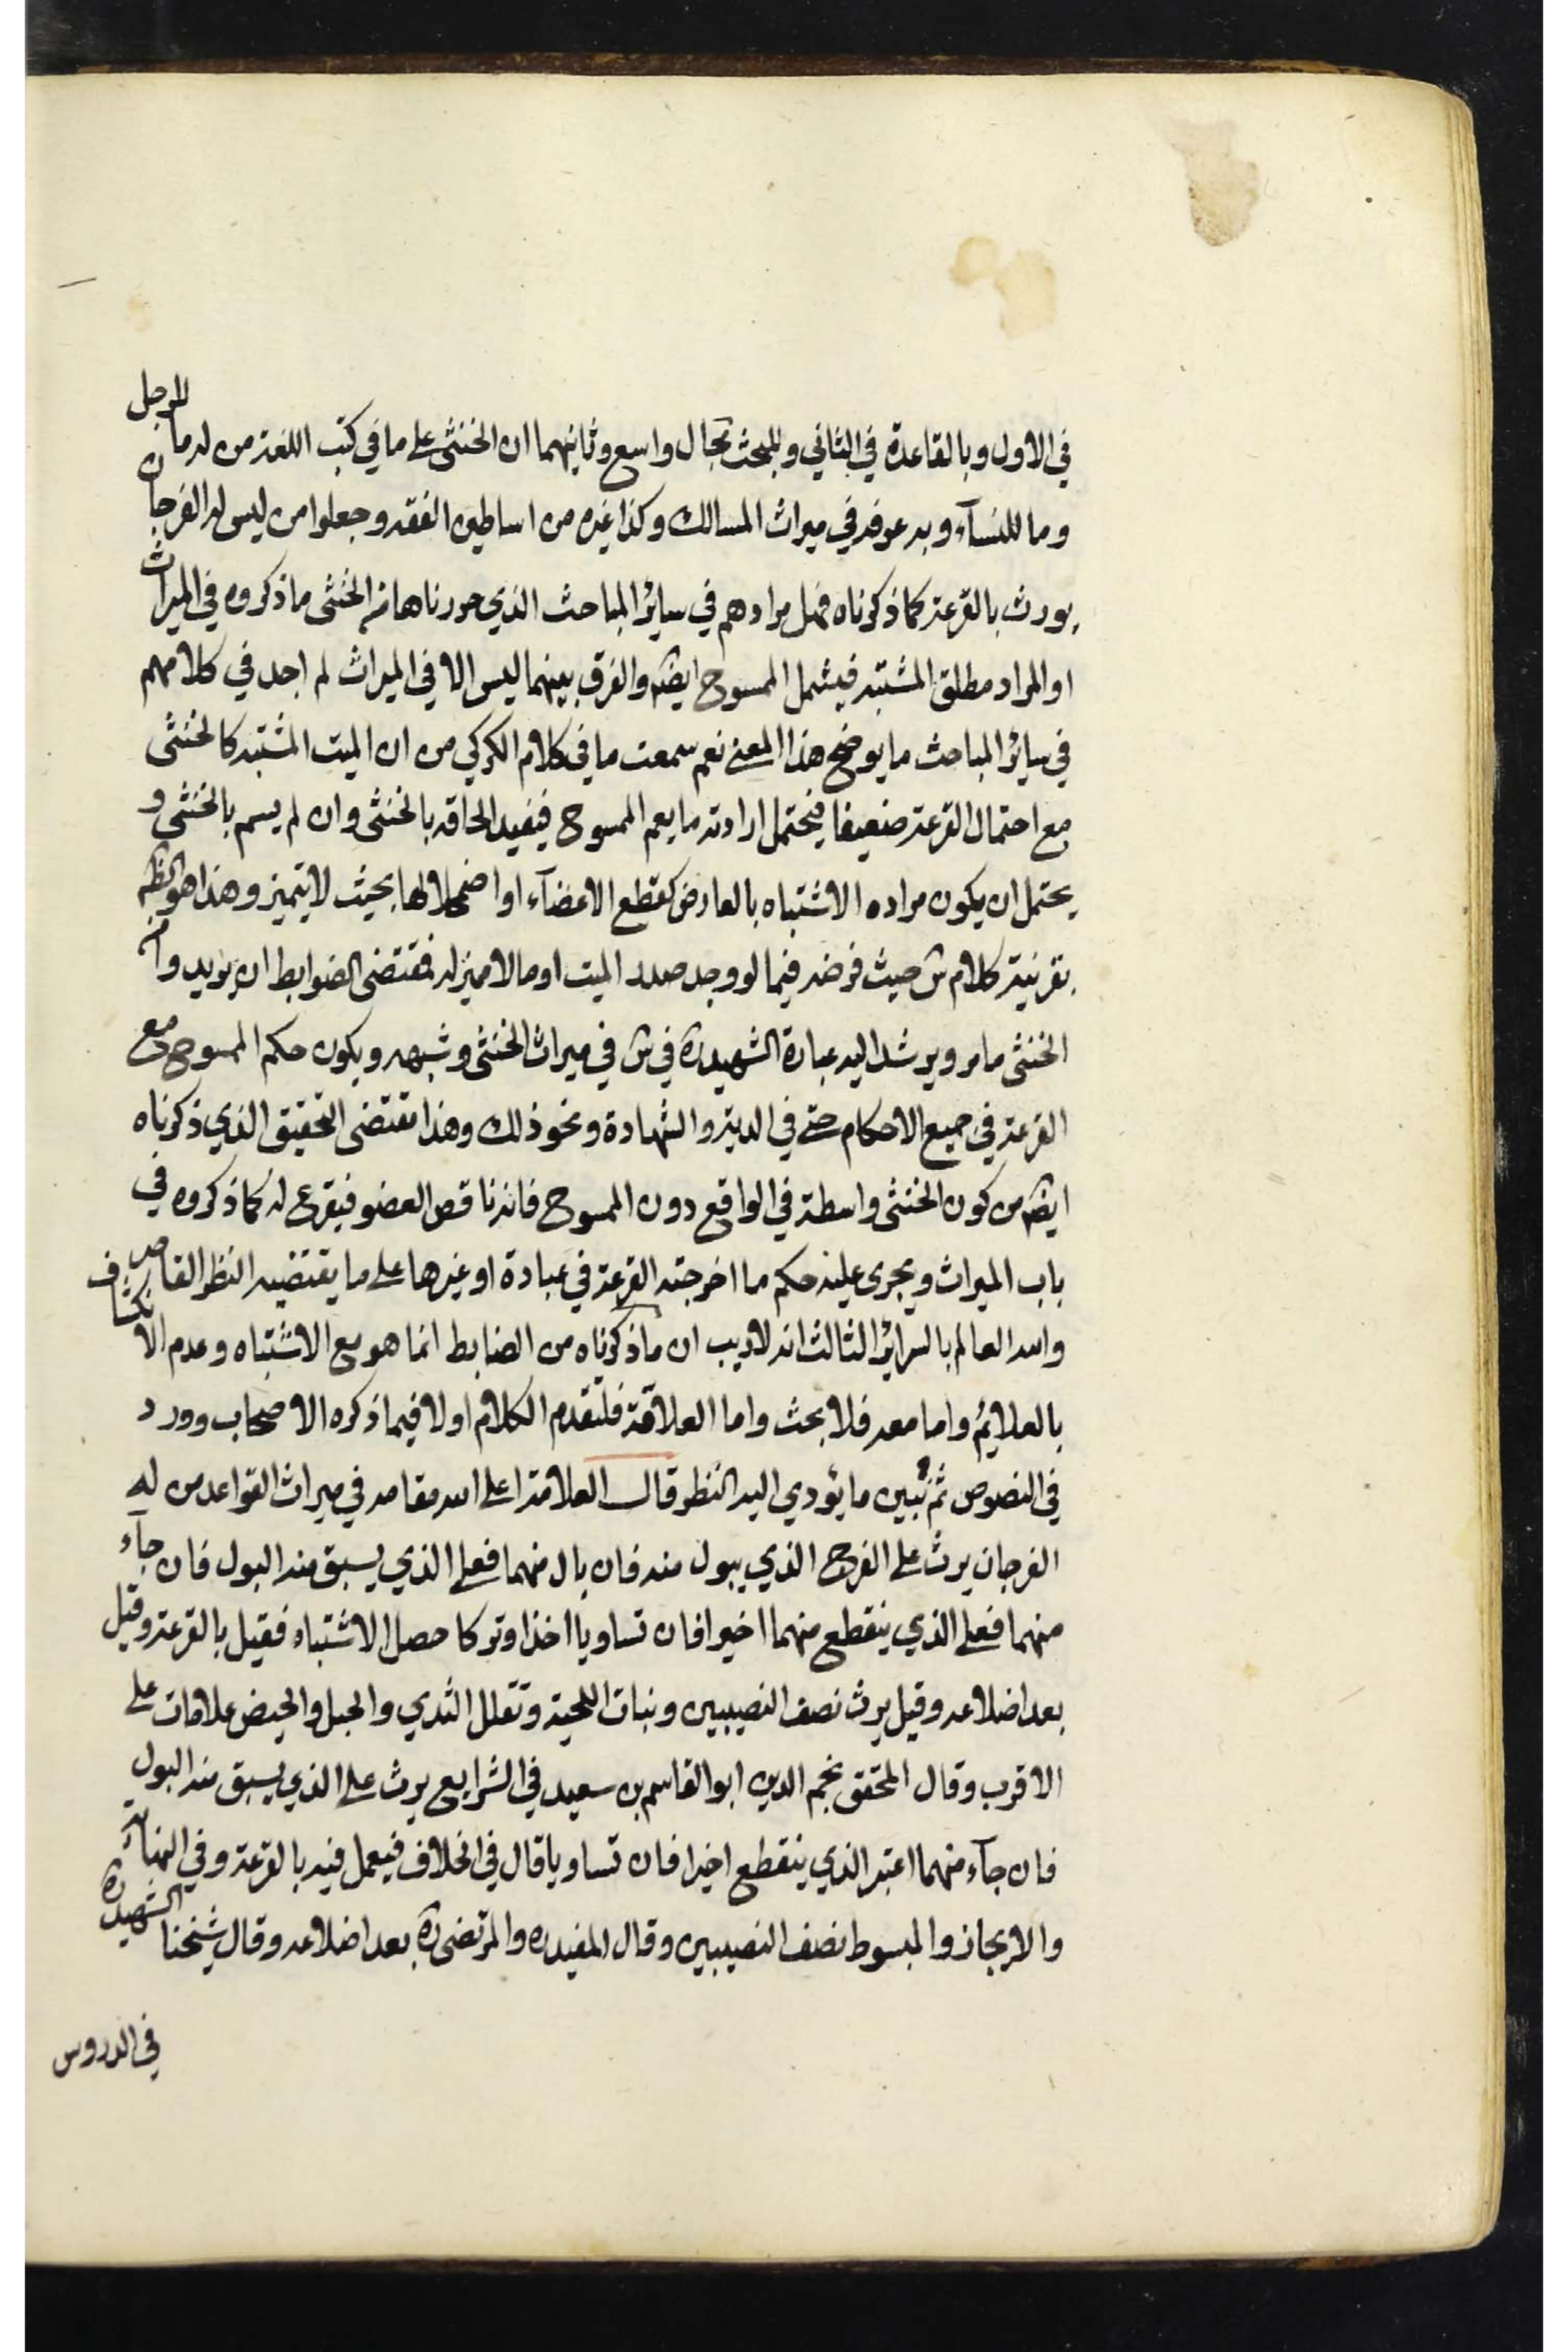 في الاول وبالقاعدة في الثاني وللبحث مجال واسع وثانيهما ان الخنثى على ما في كتب اللغة من له ما للرجل
وما للنسآء وبه عرفه في ميراث المسالك وكذا غيره من اساطين الفقه وجعلوا من ليس له الفرجان
يورث بالقرعة كما ذكرناه فهل مرادهم في سائر المباحث الذي حررناها في الخنثى ما ذكروه في الميراث
او المراد مطلق المشتبه فيشمل الممسوح ايضا والفرق بينهما ليس الا في الميراث لم اجد في كلامهم
في سائر المباحث ما يوضح هذا المعنى نعم سمعت ما في كلام الكركي من ان الميت المشتبه كالخنثى
مع احتمال القرعة ضعيفا فيحتمل ارادته ما يعم الممسوح فيفيد الحاقه بالخنثى وان لم يسم بالخنثى و
يحتمل ان يكون مراده الاشتباه بالعارض كقطع الاعضآء او اضمحلالها بحيث لا يتميز وهذا هو الظ
بقرينة كلام س حيث فرضه فيما لو وجد صدر الميت او ما لا مميز له فمقتضى الضوابط ان يريد وا من
الخنثى ما مر ويرشد اليه عبارة الشهيد ره في س في ميراث الخنثى وشبهه ويكون حكم الممسوح مع
القرعة في جميع الاحكام حتى في الدية والشهادة ونحو ذلك وهذا مقتضى التحقيق الذي ذكرناه
ايضا من كون الخنثى واسطة في الواقع دون الممسوح فانه ناقص العضو فيقرع له كما ذكروه في
باب الميراث ويجرى عليه حكم ما اخرجته القرعة في عبادة او غيرها على ما يقتضيه النظر القاصر
والله العالم بالسرائر الثالث انه لا ريب ان ما ذكرناه من الضابط انما هو مع الاشتباه وعدم الانكشاف
بالعلائم واما معه فلا بحث واما العلاقة فلنقدم الكلام اولا فيما ذكره الاصحاب وورد
في النصوص ثم نبين ما يؤدي اليه النظر قال العلامة اعلى الله مقامه في ميراث القواعد من له
الفرجان يرث على الفرج الذي يبول منه فان بال منهما فعلى الذي يسبق منه البول فان جآء
منهما فعلى الذي ينقطع منهما اخيرا فان تساويا اخذا وتركا حصل الاشتباه فقيل بالقرعة وقيل
بعد اضلاعه وقيل يرث نصف النصيبين ونبات اللحية وتفلك الثدي والحبل والحيض علامات على
الاقرب وقال المحقق نجم الدين ابو القاسم بن سعيد في الشرايع يرث على الذي يسبق منه البول
فان جآء منهما اعتبر الذي ينقطع اخيرا فان تساويا قال في الخلاف فيعمل فيه بالقرعة وفي النهاية
والايجاز والمبسوط نصف النصيبين وقال المفيد ره والمرتضى ره بعد اضلاعه وقال شيخنا الشهيد ره
في الدروس